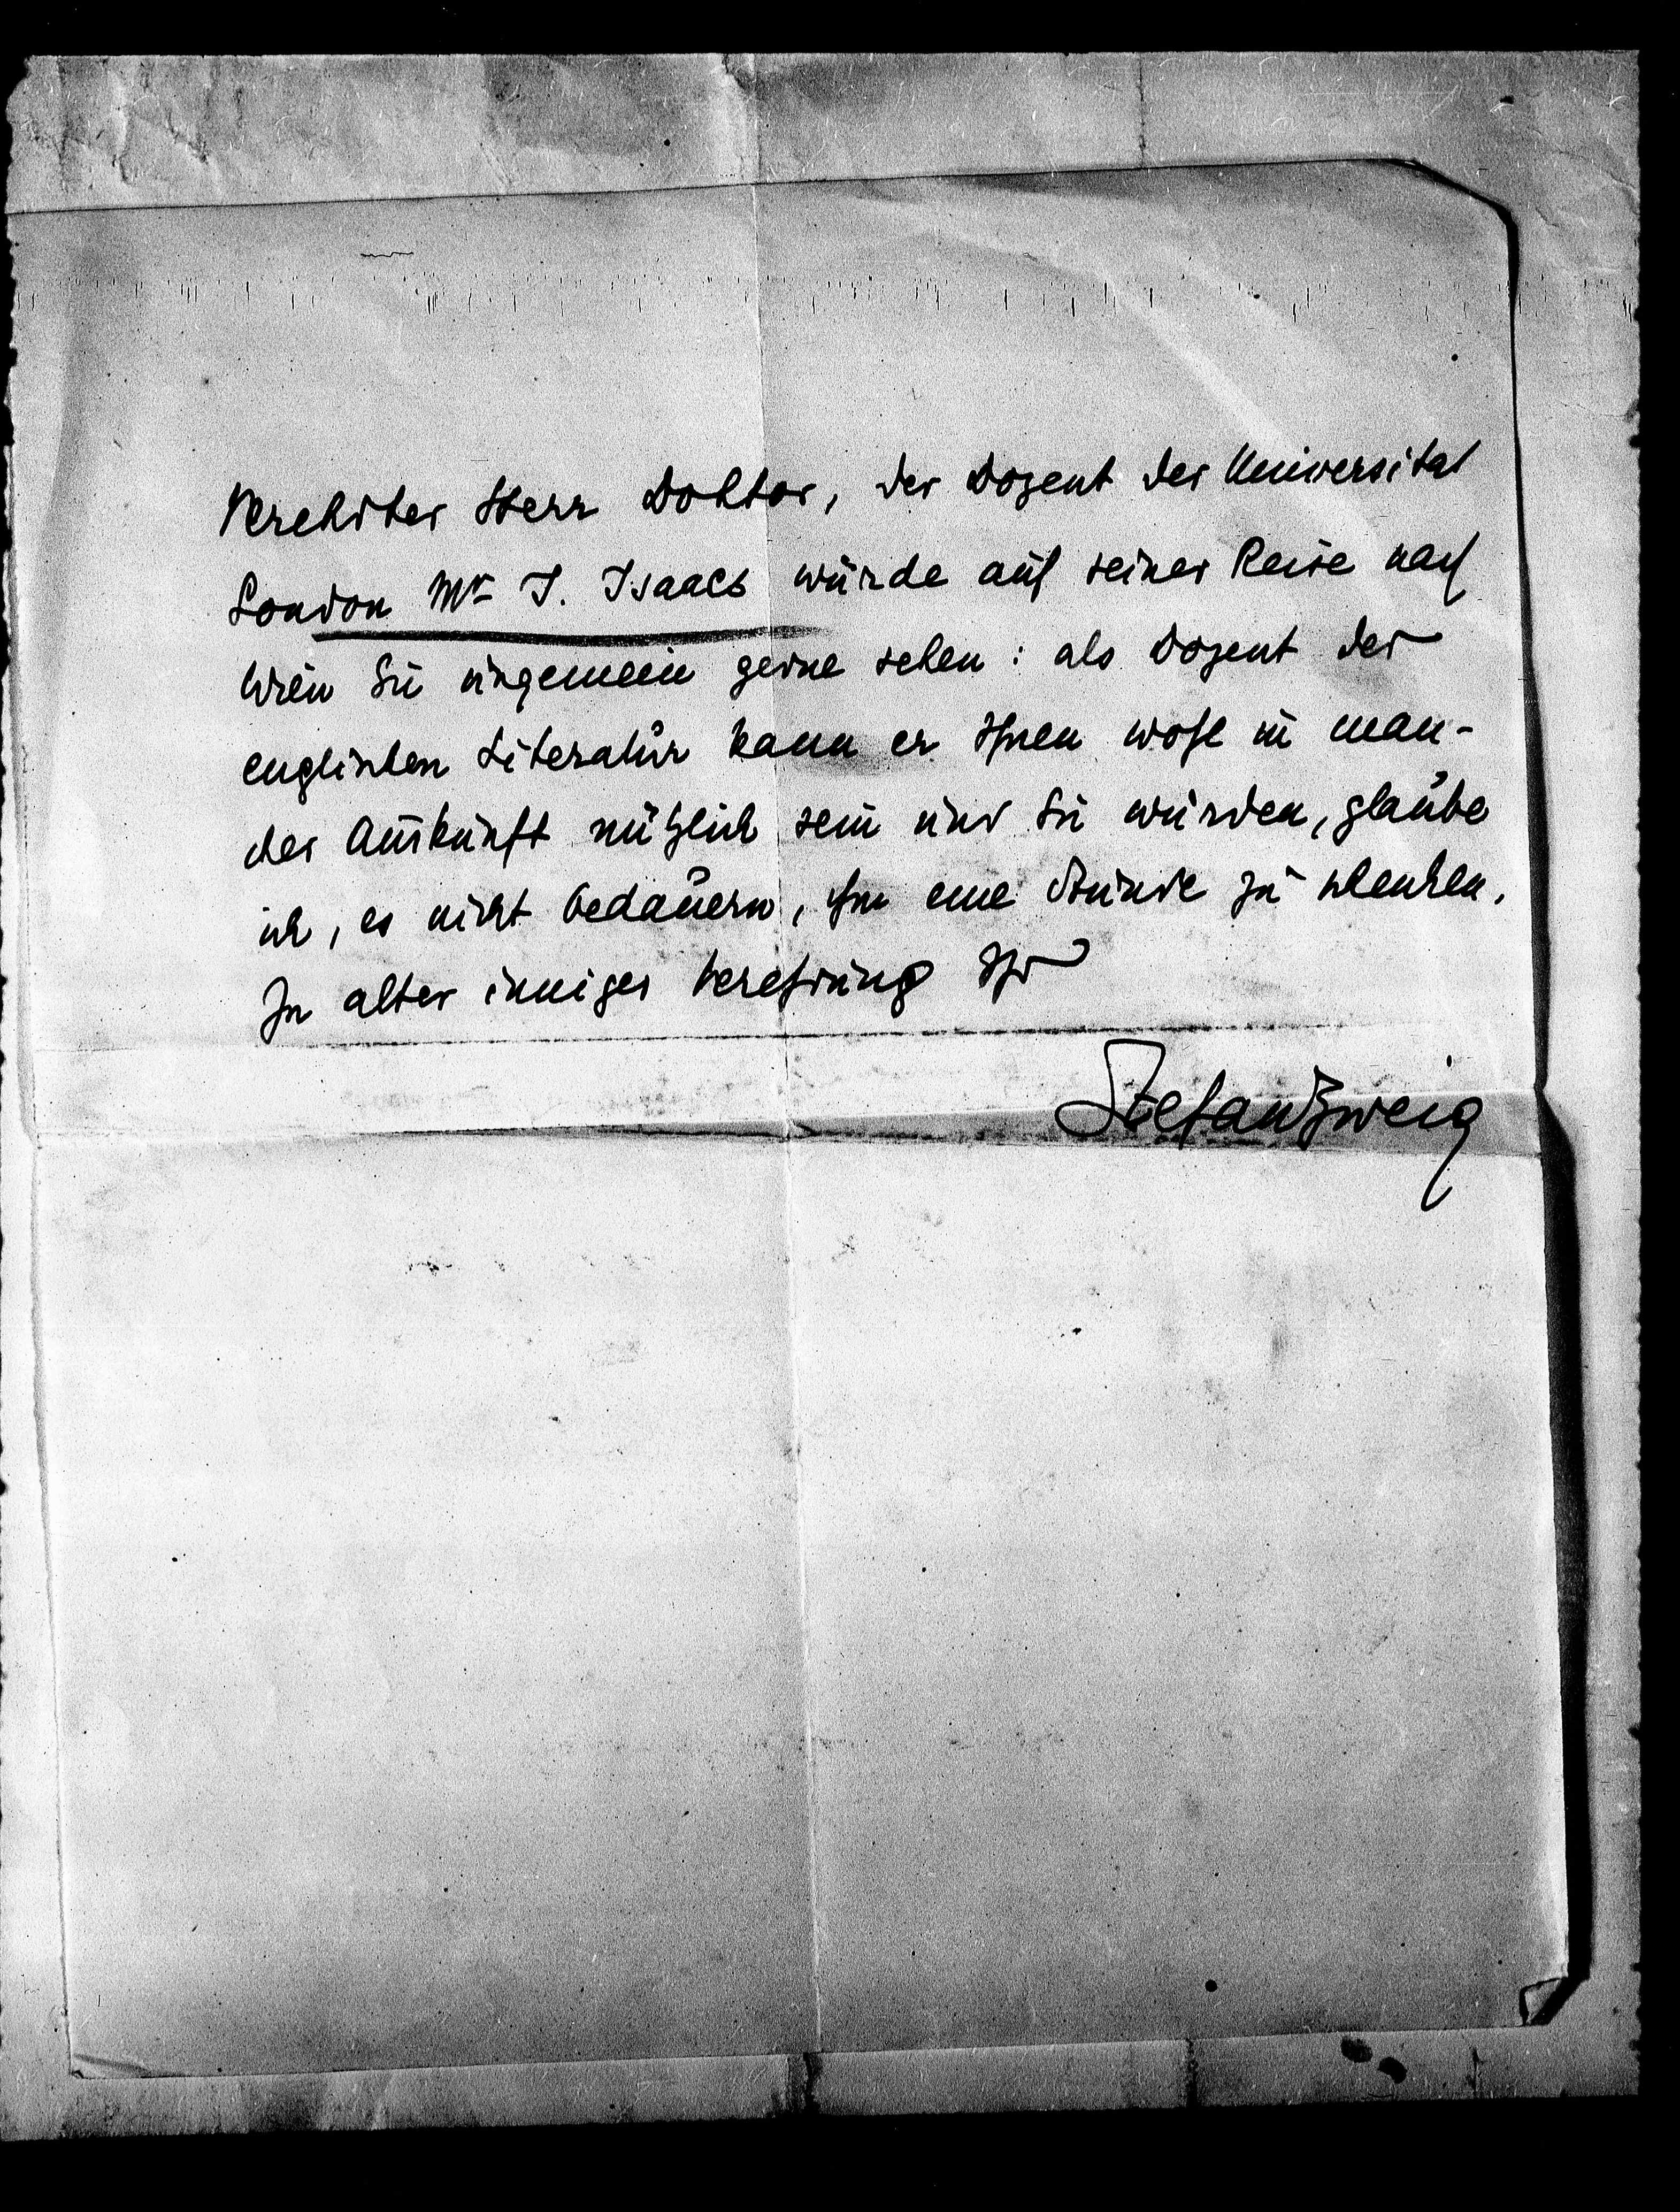 Verehrter Herr Doktor, der Dozent der Universität
London Mr J. Isaacs würde auf seiner Reise nach
Wien Sie ungemein gerne sehen: als Dozent der
englischen Literatur kann er Ihnen wohl in man-
cher Auskunft nützlich sein und Sie würden, glaube
ich, es nicht bedauern, ihm eine Stunde zu schenken.
In alter inniger Verehrung Ihr
Stefan Zweig